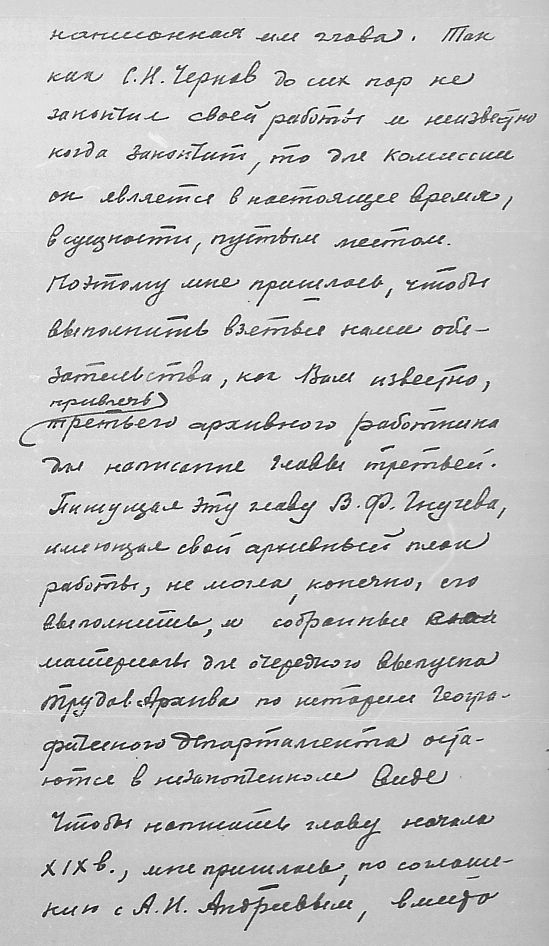 написанная им глава. Так
как С.Н. Чернов до сих пор не
закончил своей работы и неизвестно
когда закончит, то для Комиссии
он является в настоящее время,
в сущности, пустым местом.
Поэтому мне пришлось, чтобы
выполнить взятые нами обя-
зательства, как Вам известно,
привлечь
третьего архивного работника
для написание главы третьей.
Пишущая эту главу В.Ф. Гнучева,
имеющая свой архивный план
работы, не могла, конечно, его
выполнить, и собранные
материалы для очередного выпуска
Трудов Архива по истории Геогра-
фического Департамента оста-
ются в незаконченном виде
Чтобы написать главу начала
XIX в., мне пришлось, по соглаше-
нию с А.И. Андреевым, вместо